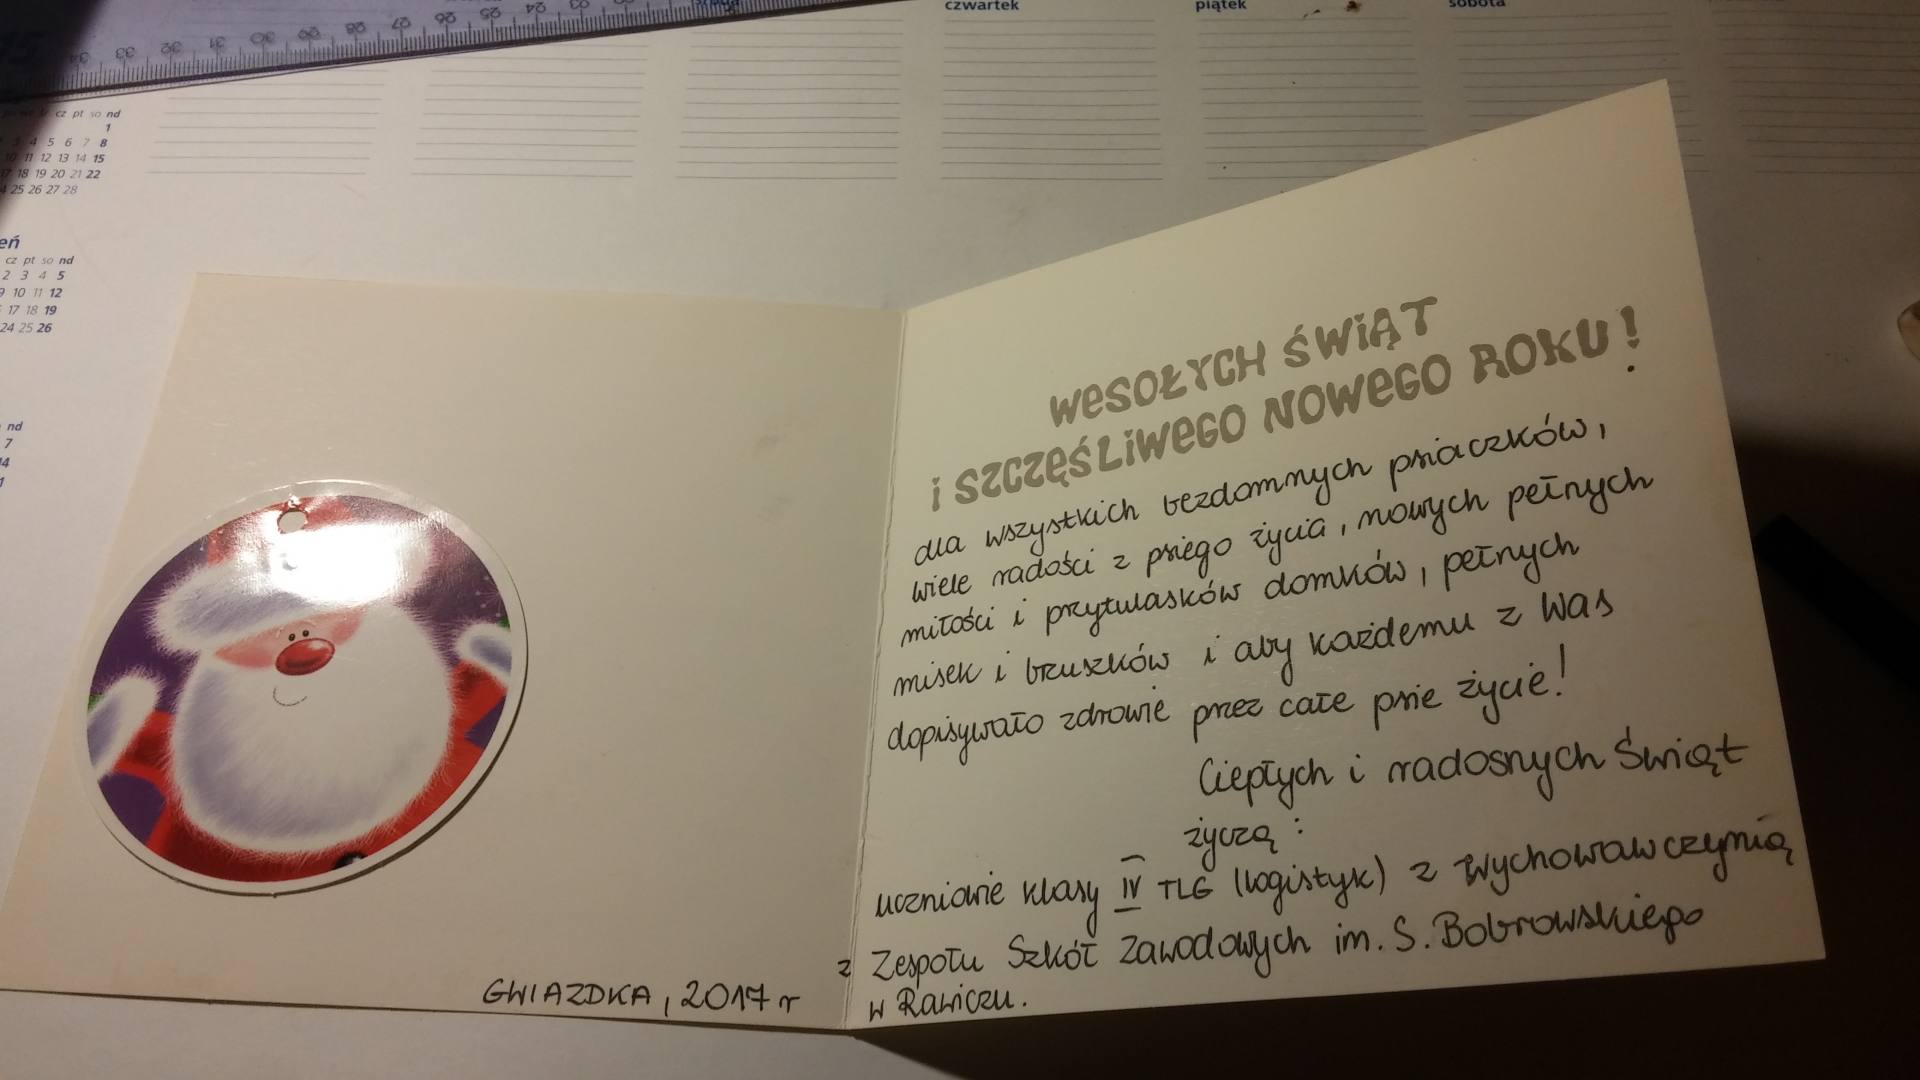 czwartek
piątek
sobota
34 33 32 31 30 29 28 27 26 25 24 23
cz pt so nd
1
3 4 5 6 7 8
10 11 12 13 14 15
17 18 19 20 21 22
25 26 27 28
eń
cz pt so nd
2 3 4 5
9 10 11 12
17 18 19
24 25 26
nd
7
WESOŁYCH ŚWIĄT
I SZCZĘŚLIWEGO NOWEGO ROKU!
dla wszystkich bezdomnych psiaczków,
wiele radości z psiego życia, nowych pełnych
miłości i przytulasków domków, pełnych
misek i brzuszków i aby każdemu z Was
dopisywało zdrowie przez całe psie życie!
Ciepłych i radosnych Świąt
życzą:
uczniowie klasy IV TLG (logistyk) z wychowawczynią
z Zespołu Szkół Zawodowych im. S. Bobrowskiego
w Rawiczu.
GWIAZDKA, 2017 r